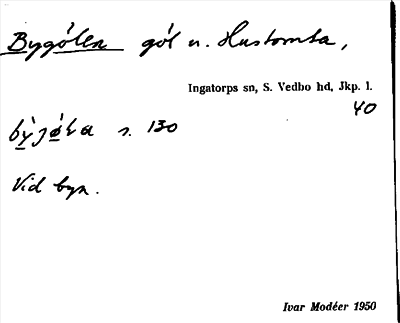 Bygölen göl n. Hustomta,
Ingatorps sn, S. Vedbo hd, Jkp. l.
40
s. 130
Vid byn.
Ivar Modéer 1950